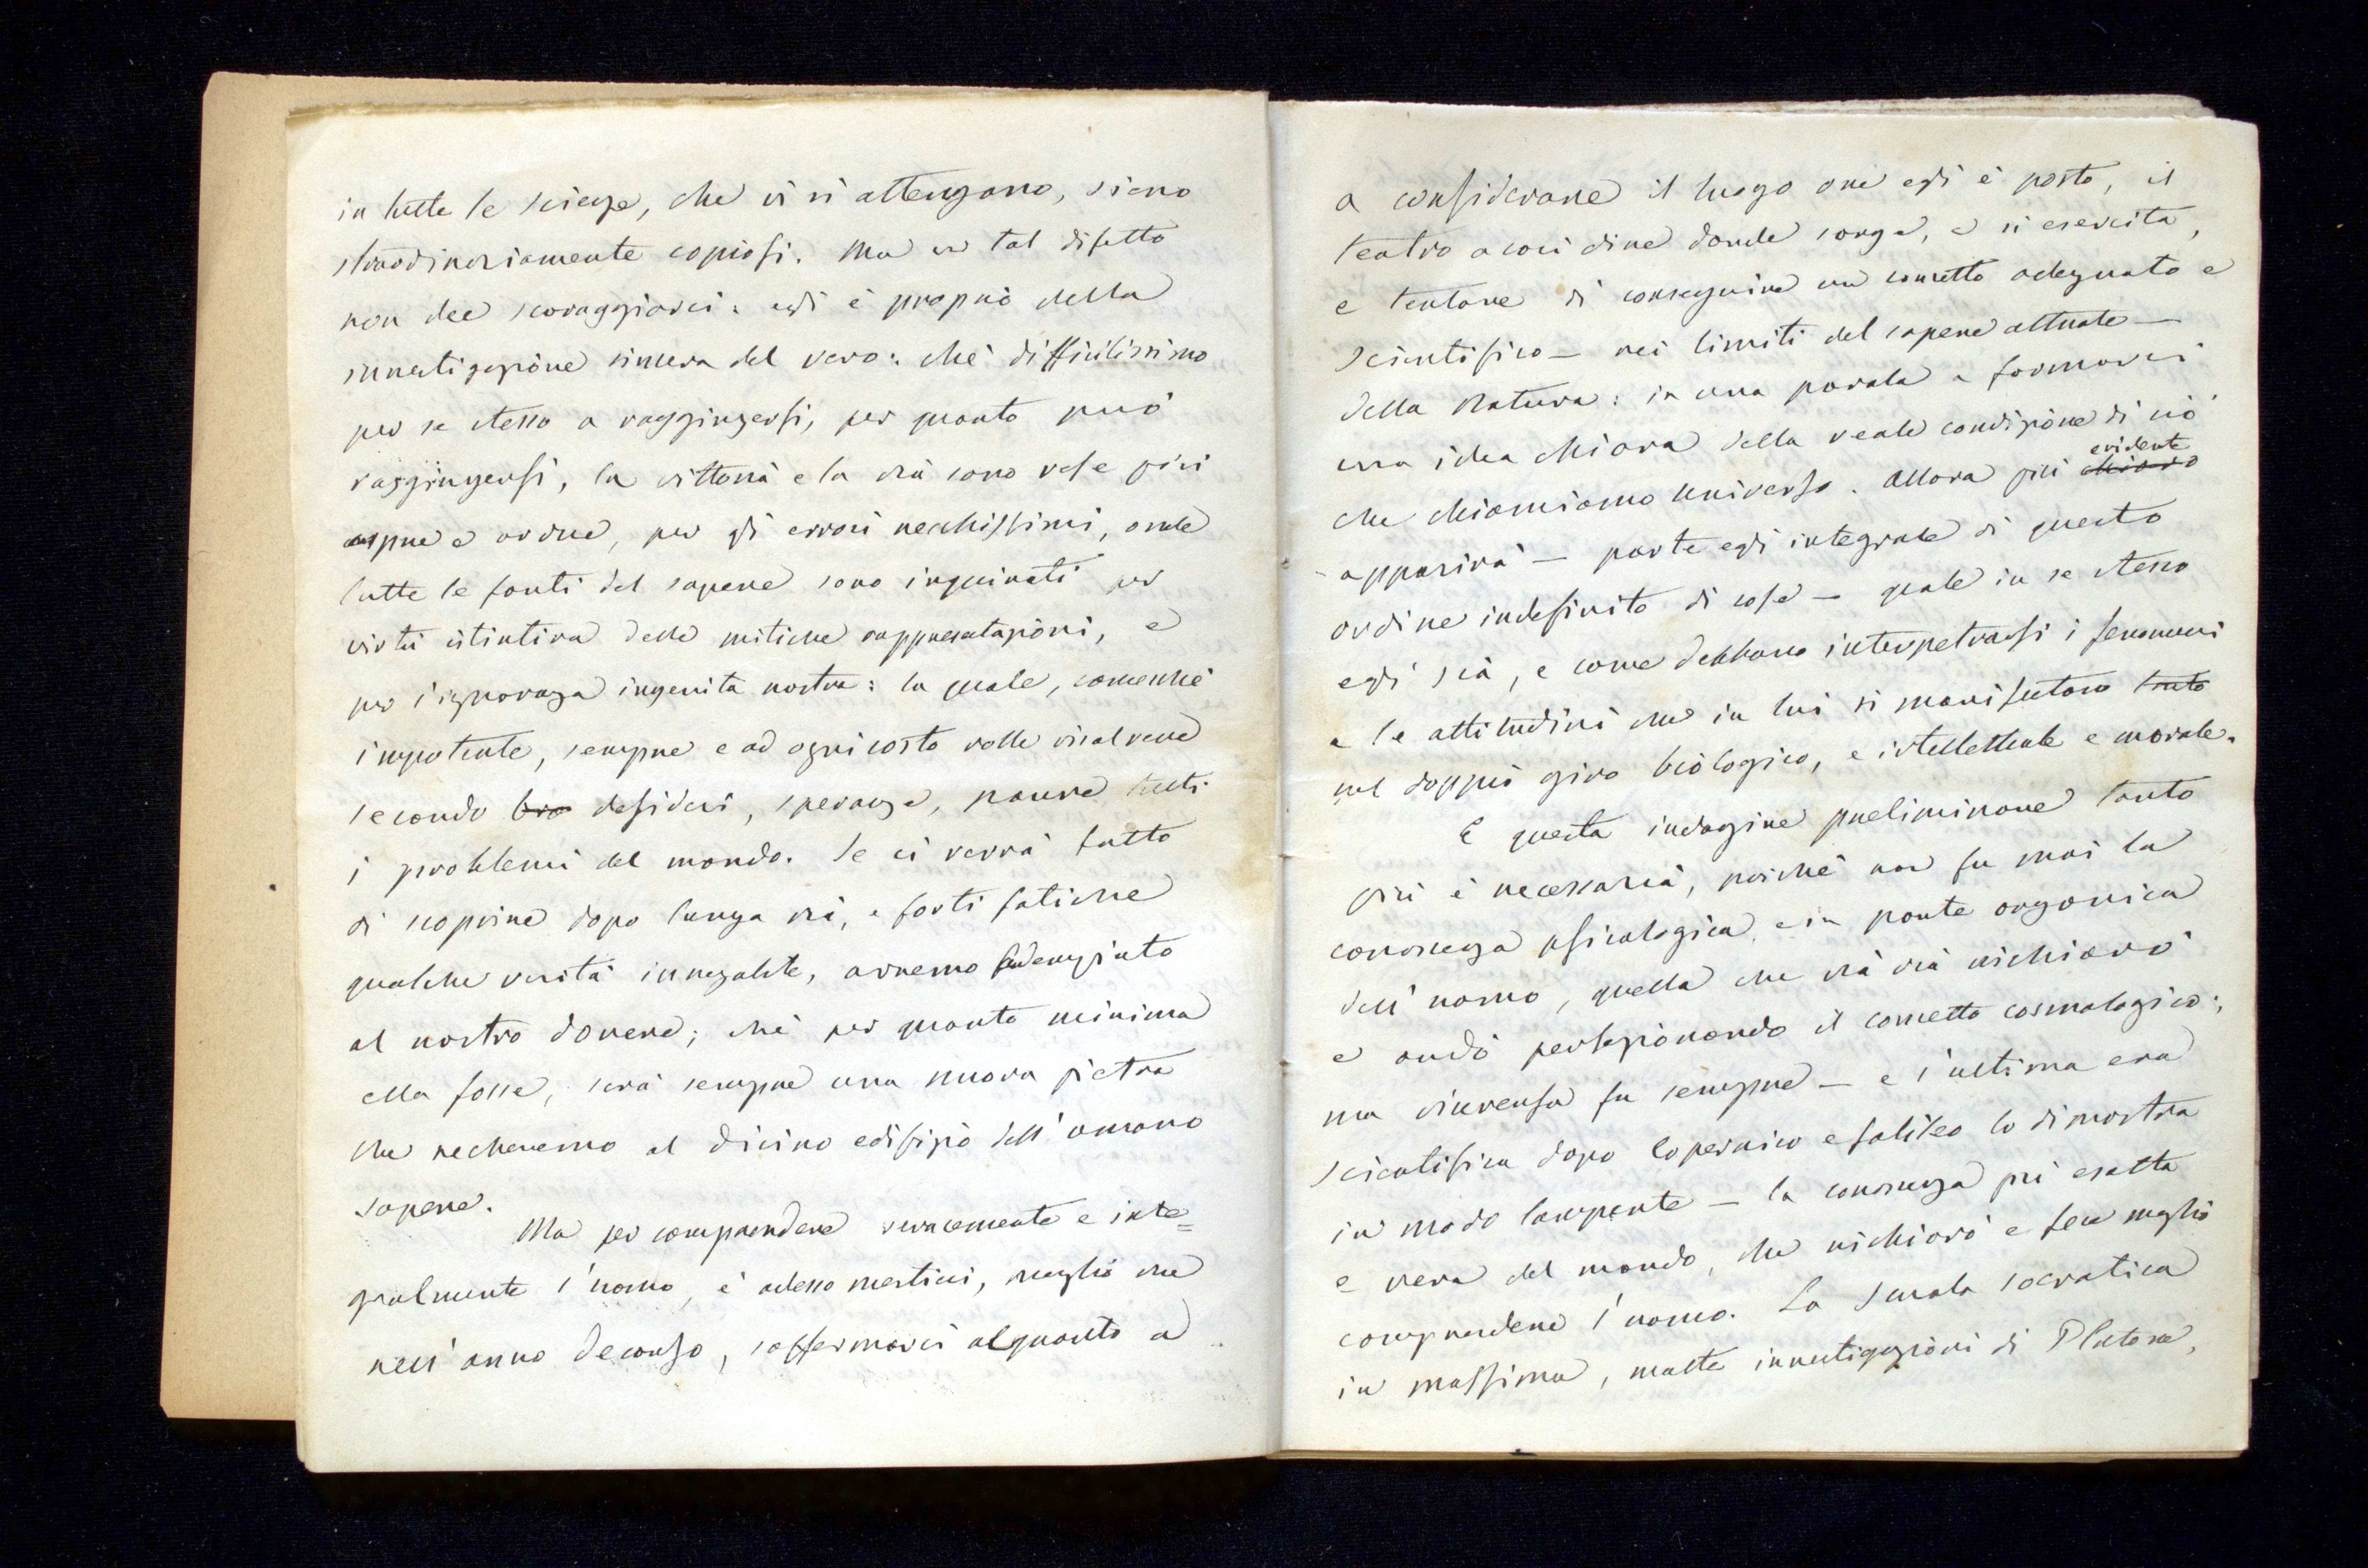 in tutte le scienze, che vi si attengano, sieno
straordinariamente copiosi. Ma un tal difetto
non dee scoraggiarci: egli è proprio della
investigazione sincera del vero: chè difficilissimo
per se stesso a raggiungersi, per quanto può
raggiungersi, la vittoria e la via sono rese più
aspre e ardue, per gli errori vecchissimi, onde
tutte le fonti del sapere sono inquinati per
virtù istintiva delle mitiche rappresentazioni, e
per l'ignoranza ingenita nostra: la quale, comecchè
impotente, sempre e ad ogni costo volle risolvere
secondo loro desideri, speranze, paure tutti
i problemi del mondo. Se ci verrà fatto
di scoprire dopo lunga via, e forti fatiche
qualche verità innegabile, avremo adempiuto
al nostro dovere; chè per quanto minima
ella fosse, sarà sempre una nuova pietra
che recheremo al divino edifizio dell'umano
sapere.
Ma per comprendere veracemente e inte=
gralmente l'uomo, è adesso mestieri, meglio che
nell'anno decorso, soffermarci alquanto a
a considerare il luogo ove egli è posto, il
teatro a così dire donde sorge, e si esercita,
e tentare di conseguire un concetto adeguato e
scientifico — nei limiti del sapere attuale —
della Natura: in una parola a formarci
una idea chiara della reale condizione di ciò
che chiamiamo Universo. Allora più chiaro evidente
apparirà — parte egli integrale di questo
ordine indefinito di cose — quale in se stesso
egli sia, e come debbano interpetrarsi i fenomeni
e le attitudini che in lui si manifestano tanto
nel doppio giro biologico, e intellettuale e morale.
E questa indagine preliminare tanto
più è necessaria, poichè non fu mai la
conoscenza psicologica, e in parte organica
dell'uomo, quella che via via rischiarò
e andò perfezionando il concetto cosmologico:
ma viceversa fu sempre — e l'ultima era
scientifica dopo Copernico e Galileo lo dimostra
in modo lampante — la conoscenza più esatta
e vera del mondo, che rischiarò e fece meglio
comprendere l'uomo. La Scuola socratica
in massima, molte investigazioni di Platone,